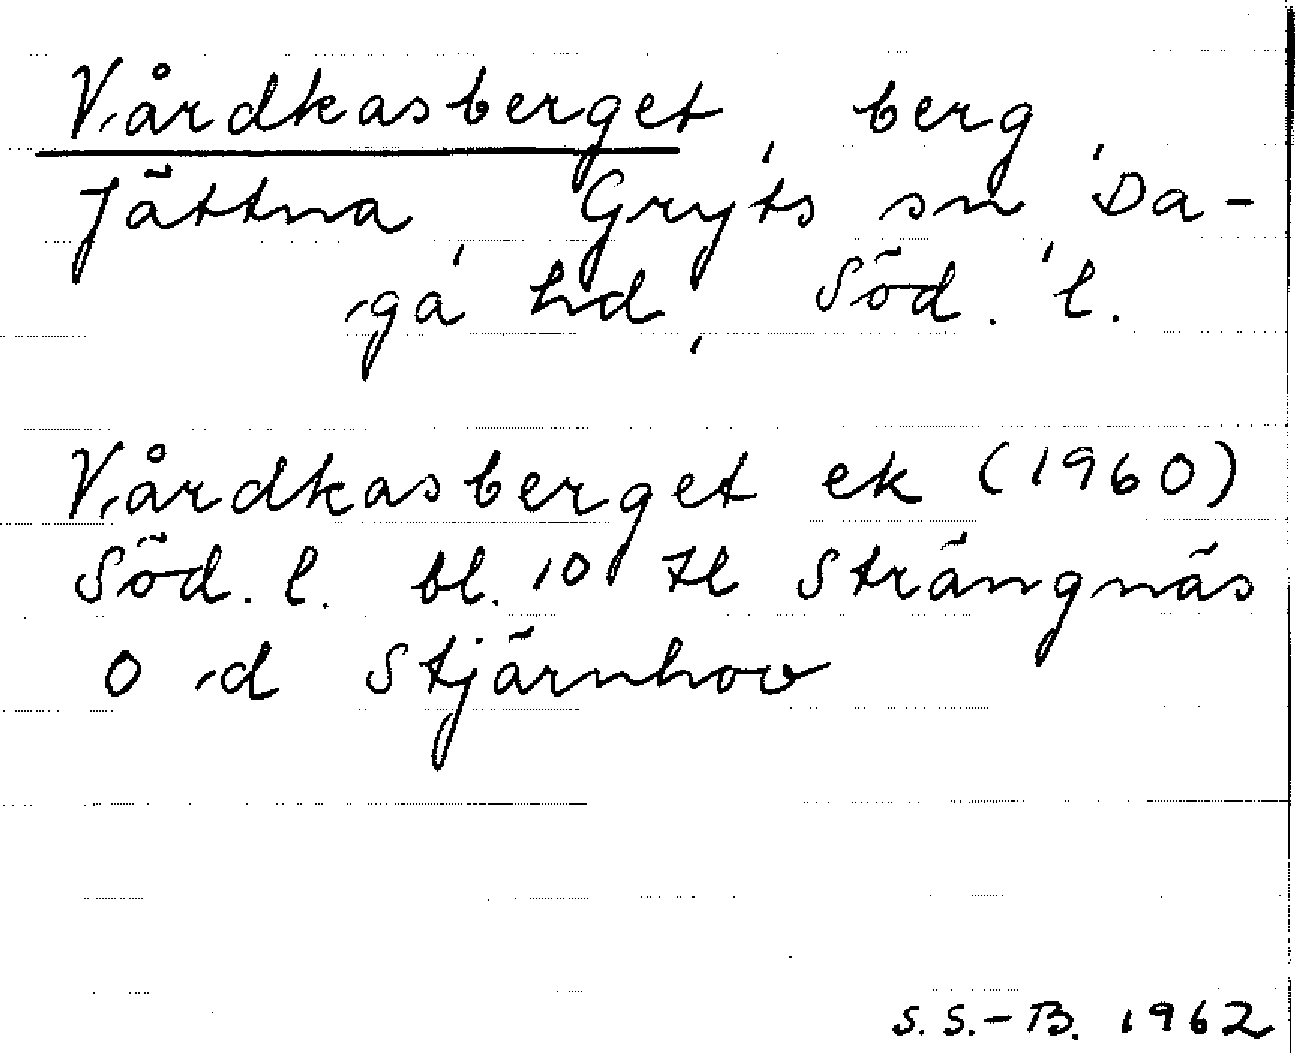 Vårdkasberget, berg,
Jättna, Gryts sn, Da-
ga hd, Söd. l.
Vårdkasberget ek (1960)
Söd. l. bl. 10 tl Strängnäs
O-d Stjärnhov
S.S.-B. 1962